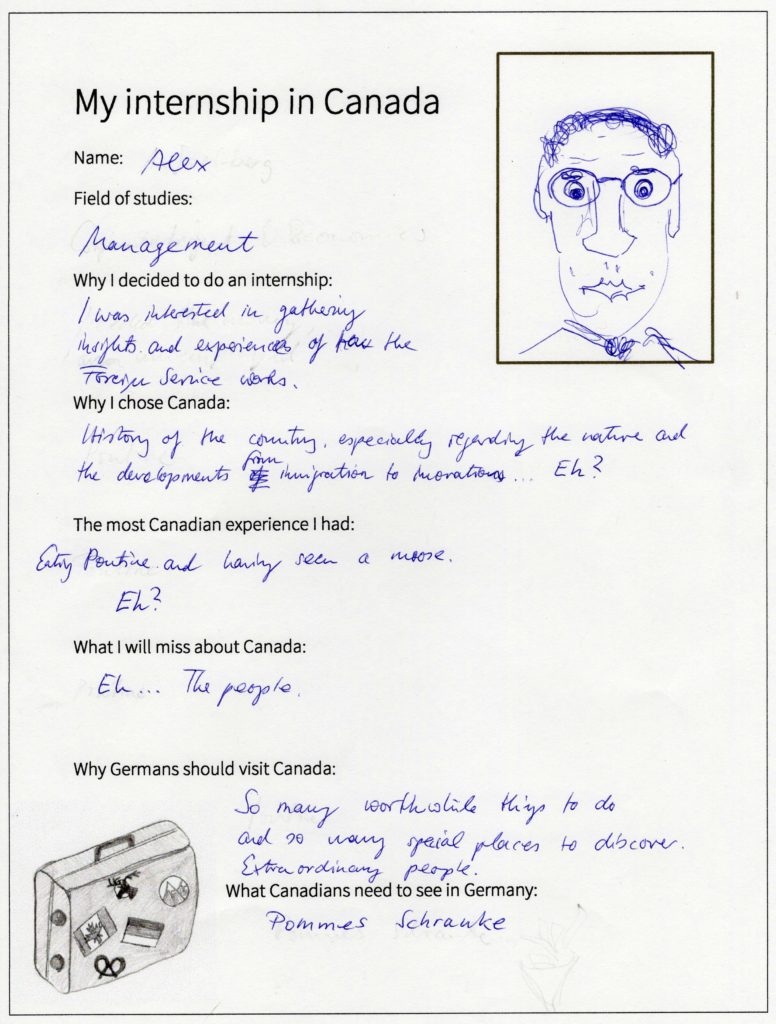 My internship in Canada
Name: Alex
Field of studies:
Management
Why I decided to do an internship:
I was interested in gathering
insights and experiences of how the
Foreign Service works.
Why I chose Canada:
History of the country, especially regarding the nature and
the developments from immigration to inovations... Eh?
The most Canadian experience I had:
Eating Poutine and having seen a moose.
Eh?
What I will miss about Canada:
Eh... The people.
Why Germans should visit Canada:
So many worthwhile things to do
and so many special places to discover.
Extraordinary people.
What Canadians need to see in Germany:
Pommes Schranke